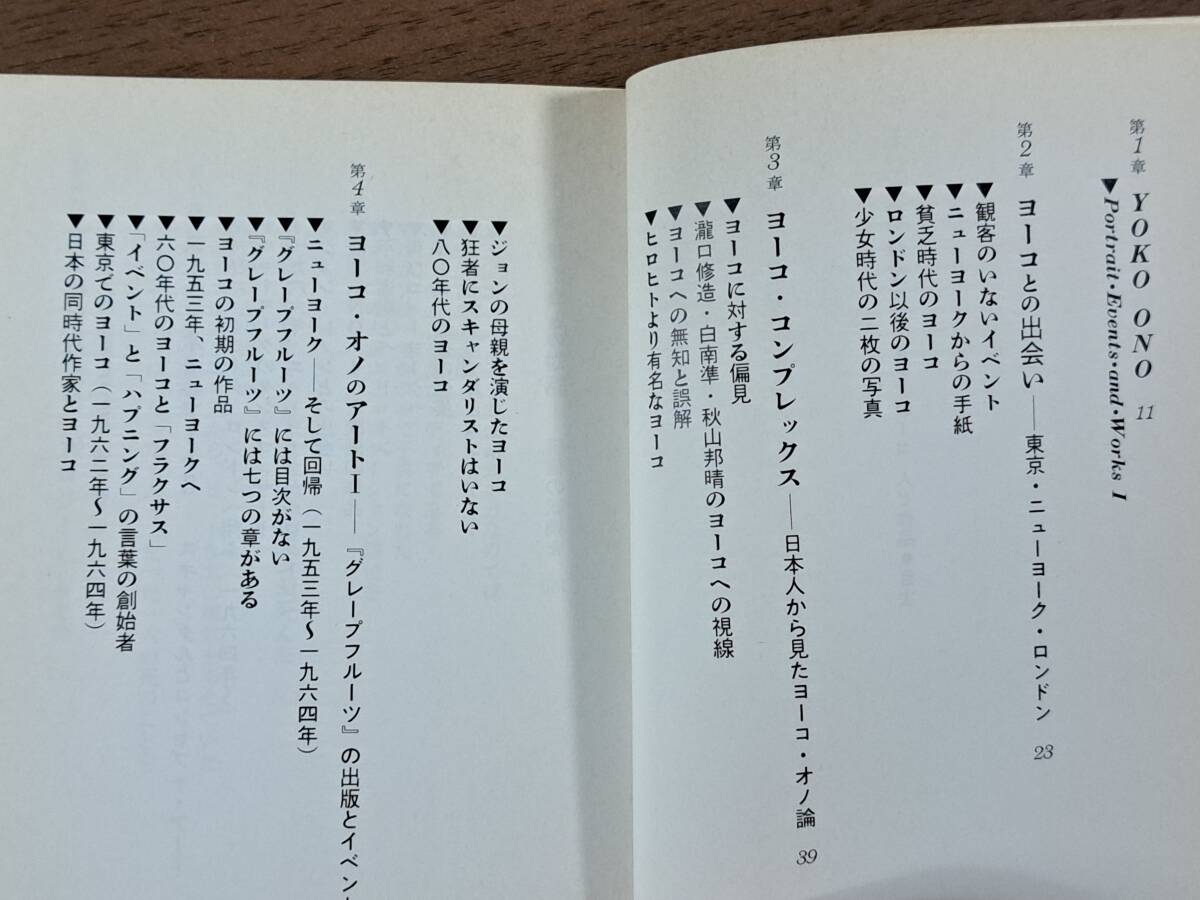 第1章 YOKO ONO 11
▼Portrait・Events・and・Works I
第2章 ヨーコとの出会い——東京・ニューヨーク・ロンドン 23
▼観客のいないイベント
▼ニューヨークからの手紙
▼貧乏時代のヨーコ
▼ロンドン以後のヨーコ
▼少女時代の二枚の写真
第3章 ヨーコ・コンプレックス——日本人から見たヨーコ・オノ論 39
▼ヨーコに対する偏見
▼瀧口修造・白南準・秋山邦晴のヨーコへの視線
▼ヨーコへの無知と誤解
▼ヒロヒトより有名なヨーコ
▼ジョンの母親を演じたヨーコ
▼狂者にスキャンダリストはいない
▼八〇年代のヨーコ
第4章 ヨーコ・オノのアートI——『グレープフルーツ』の出版とイベン
▼ニューヨーク——そして回帰（一九五三年〜一九六四年）
▼『グレープフルーツ』には目次がない
▼『グレープフルーツ』には七つの章がある
▼ヨーコの初期の作品
▼一九五三年、ニューヨークへ
▼六〇年代のヨーコと「フラクサス」
▼「イベント」と「ハプニング」の言葉の創始者
▼東京でのヨーコ（一九六二年〜一九六四年）
▼日本の同時代作家とヨーコ